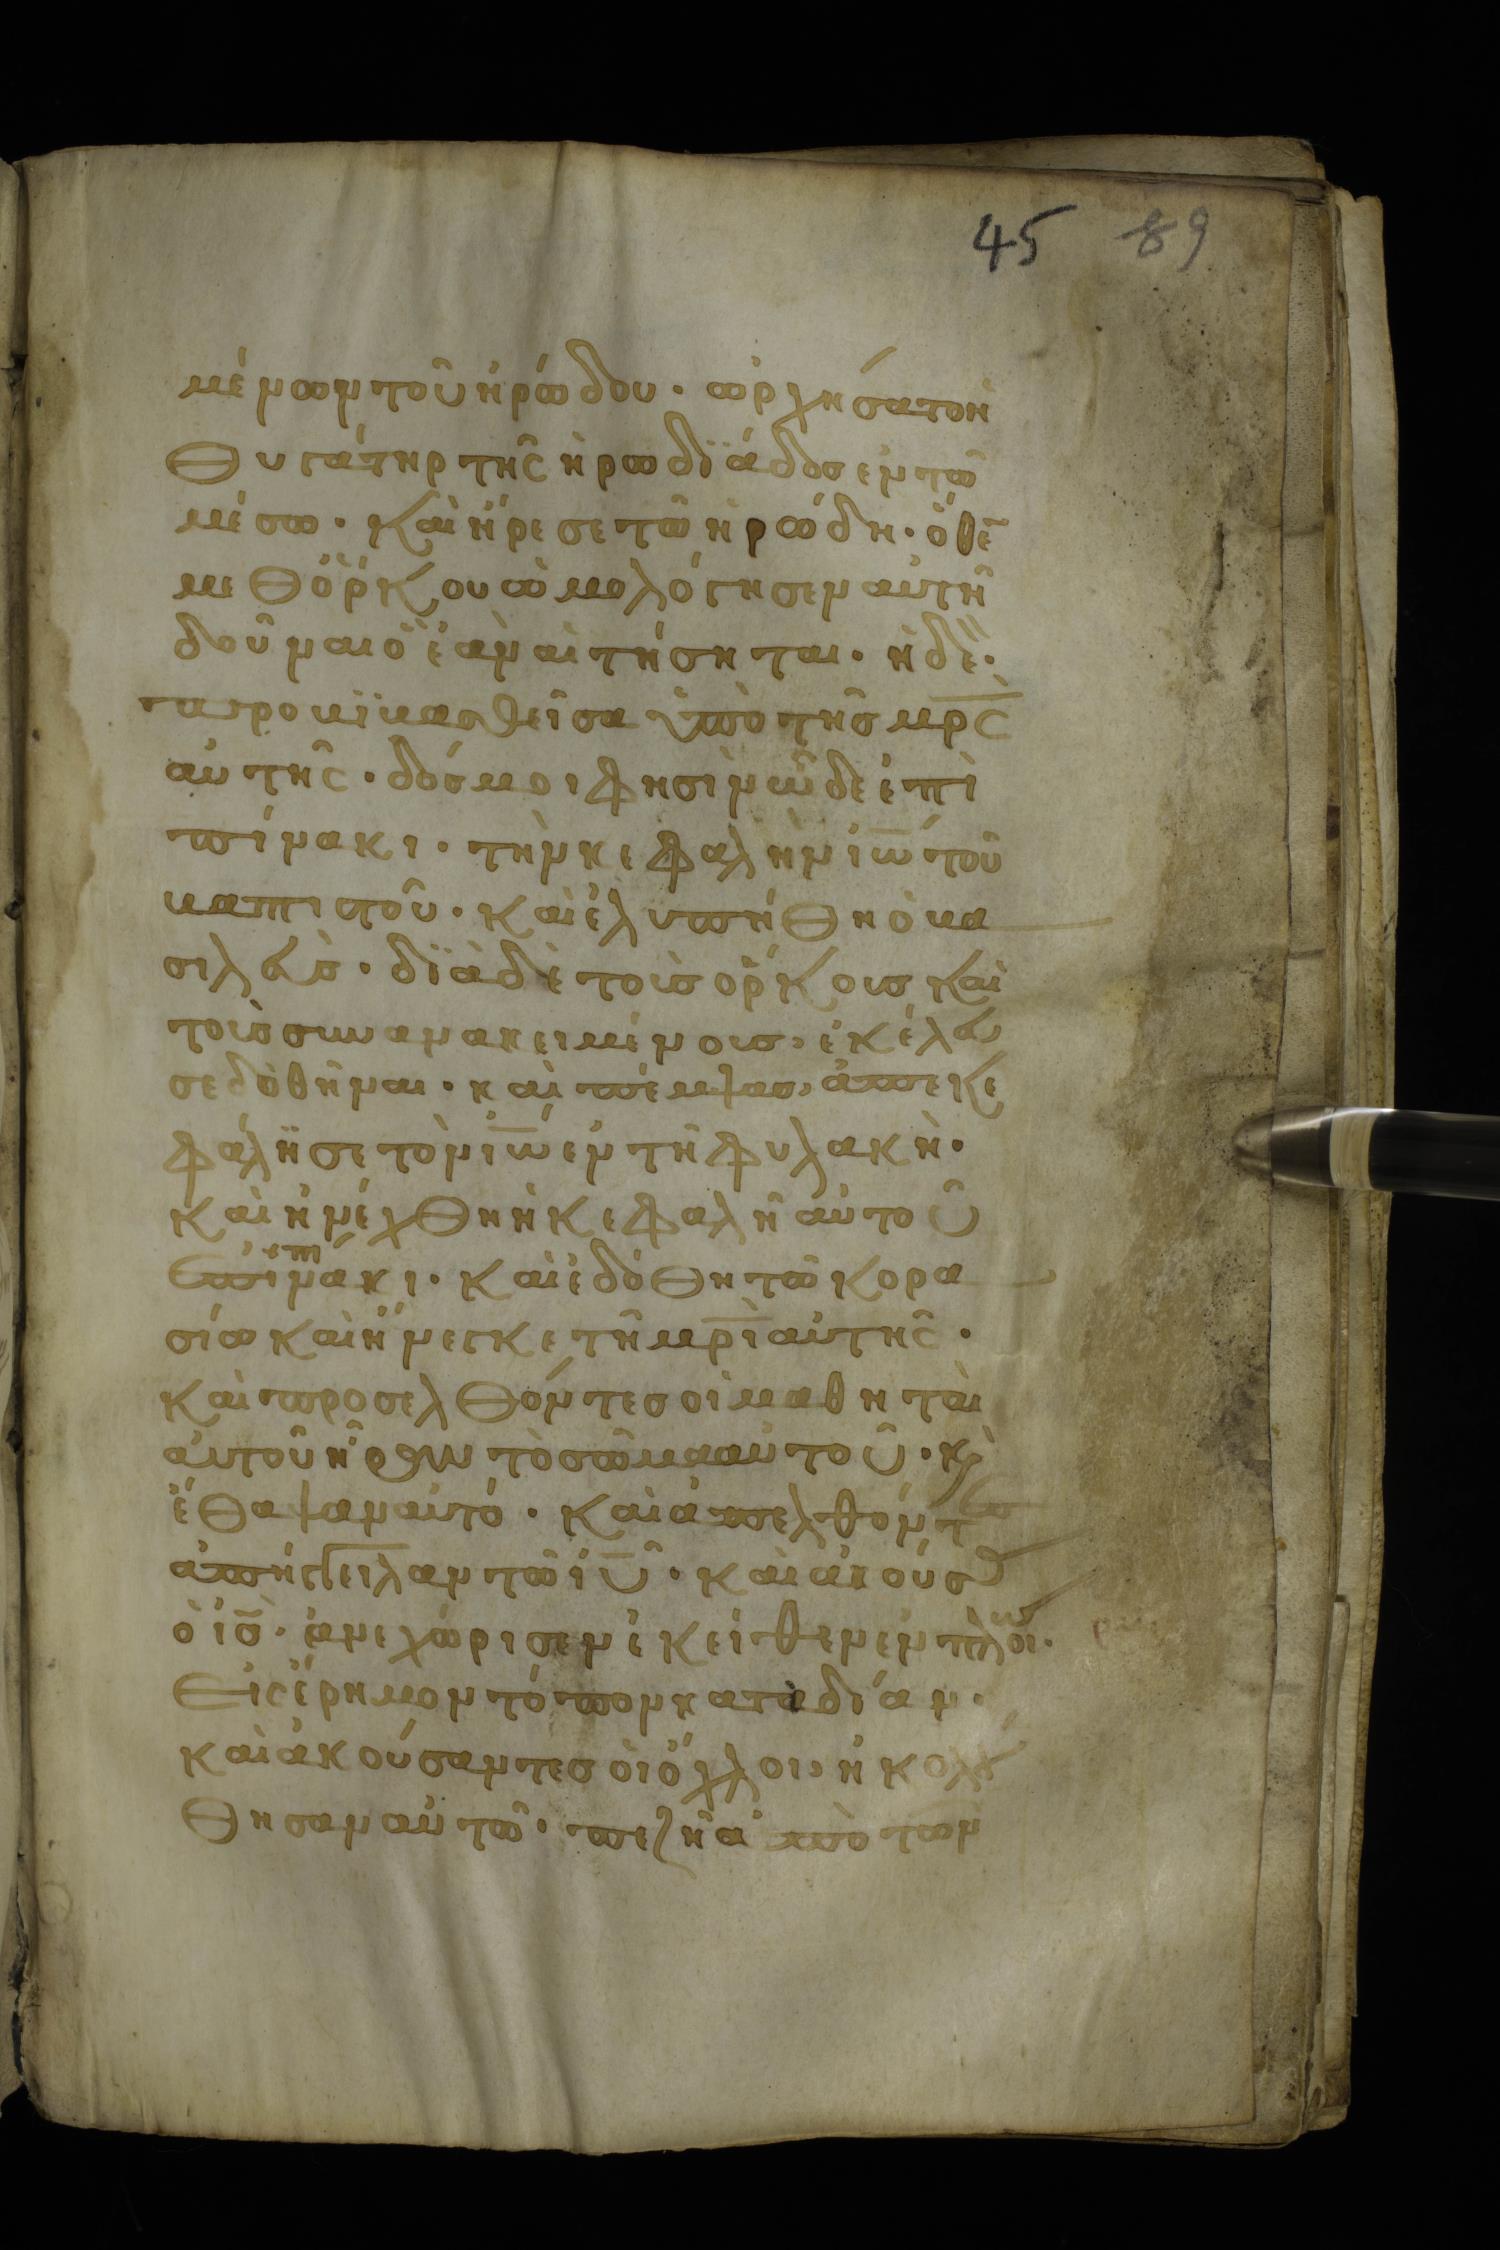 45 89
μένων τοῦ ἡρώδου · ὠρχήσατο ἡ
θυγάτηρ τῆς ἡρωδϊάδος ἐν τῶ
μέσω · καὶ ἤρεσε τῶ ἡρώδη · ὅθε̄
μεθ ὅρκου ὡμολόγησεν αὐτῆ
δοῦναι ὃ ἐὰν αἰτήσηται · ἡ δὲ ·
προβϊβασθεῖσα ὑπὸ τῆς μρ̄ς
αὐτῆς · δός μοι φησὶν ὧδε ἐπὶ
πίνακι · τὴν κεφαλὴν ἰω̄ τοῦ
βαπτιστοῦ · καὶ ἐλυπήθη ὁ βα
σιλεὺς · δϊὰ δὲ τοὺς ὅρκους καὶ
τοὺς συνανακειμένους, ἐκέλευ
σε δοθῆναι · καὶ πέμψας, ἀπεκε
φάλησε τὸν ἰω̄ ἐν τῆ φυλακῆ ·
καὶ ἠνέχθη ἡ κεφαλὴ αὐτοῦ
ἐπὶ πίνακι · καὶ ἐδόθη τῶ κορα
σίω καὶ ἤνεγκε τῆ μρ̄ὶ αὐτῆς ·
καὶ προσελθόντες οἱ μαθηταὶ
αὐτοῦ ἦραν τὸ σῶμα αὐτοῦ · κ̀
ἔθαψαν αὐτό · καὶ ἀπελθόντες
ἀπήγγειλαν τῶ ἰῦ · καὶ ἀκούσας
ὁ ἰς̄ · ἀνεχώρισεν ἐκεῖθεν ἐν πλοίω ·
εἰς ἔρημον τόπον κατ ἀδίαν ·
καὶ ἀκούσαντες οἱ ὄχλοι, ἠκολού
θησαν αὐτῶ · πεζῆ ἀπὸ τῶν